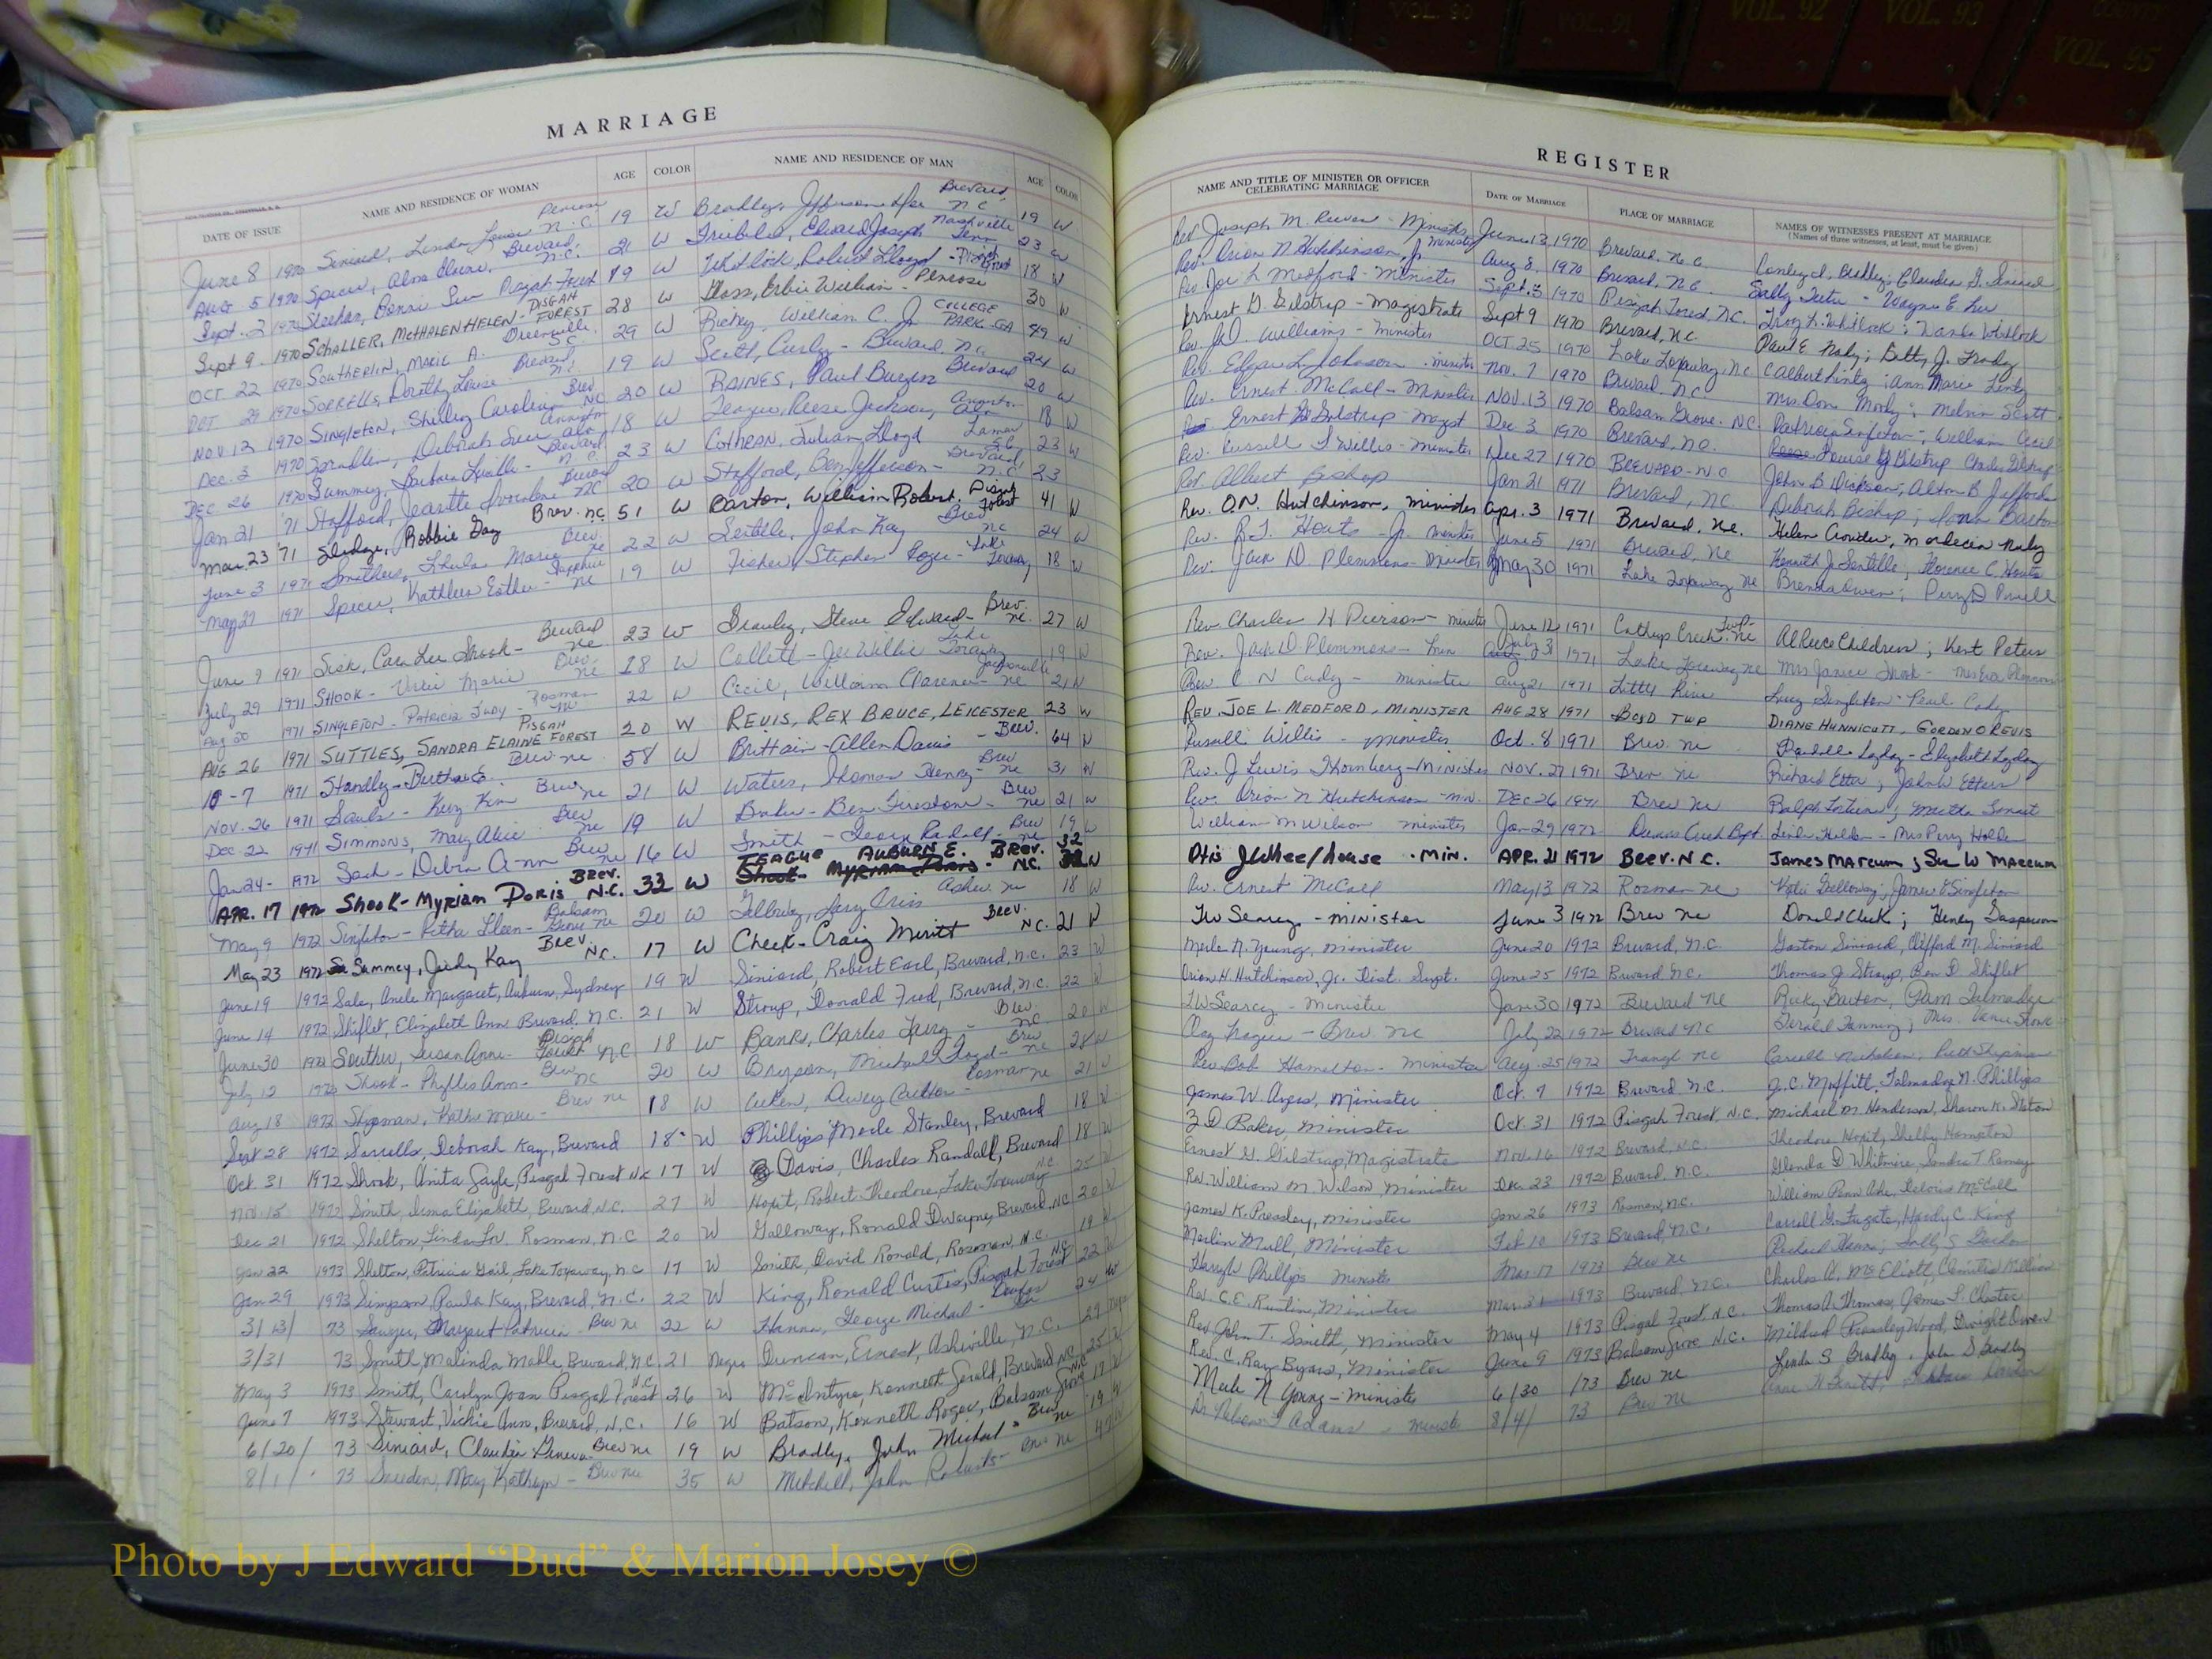 VOL. 90 VOL. 91 VOL. 92 VOL. 93 VOL. 95
MARRIAGE
DATE OF ISSUE NAME AND RESIDENCE OF WOMAN AGE COLOR NAME AND RESIDENCE OF MAN AGE COLOR
June 8 1970 Siniard, Linda Louise Penrose N.C. 19 W Bradley, Jefferson Lee Brevard N.C. 19 W
Aug 5 1970 Spicer, Alma Elaine, Brevard, N.C. 21 W Edward Joseph Nashville Tenn 23 W
Sept. 2 1970 Bonnie Sue Pisgah Forest 19 W Whitlock, Robert Lloyd - Pisgah Forest 18 W
Sept 9. 1970 SCHALLER, McTHALEN HELEN - PISGAH FOREST 28 W Erbie William - Penrose 30 W
OCT 22 1970 SOUTHERLIN, MARIE A. Greenville, S.C. 29 W Richey, William C. Jr COLLEGE PARK-GA 49 W
OCT 29 1970 SORRELLS, Dorothy Louise Brevard, N.C. 19 W Scott, Curly - Brevard, N.C. 24 W
NOV. 12 1970 SINGLETON, Shirley Carolen Brev NC 20 W RAINES, Paul Burgin Brevard 20 W
Dec. 3 1970 Spradlin, Deborah Sue Anniston Ala 18 W Teague, Reese Jackson, Anniston Ala 18 W
DEC 26 1970 Summey, Barbara Lucille - Brevard N.C. 23 W Cothran, Julian Lloyd Lamar SC 23 W
Jan 21 '71 Stafford, Jeanette Brevard NC 20 W Stafford, Ben Jefferson - Brevard, N.C. 23
Mar. 23 '71 Sledge, Robbie Gay Brev. NC 51 W Barton, William Robert, Pisgah Forest 41 W
June 3 1971 Smathers, Marie Brev. NC 22 W Sentelle, John Kay Brev NC 24 W
May 27 1971 Spicer, Kathleen Esther - Sapphire NC 19 W Fisher, Stephen Roger - Lake Toxaway 18 W
June 9 1971 Sisk, Cara Lee Shook - Brevard NC 23 W Steve Edward - Brev. NC. 27 W
July 29 1971 SHOOK - Marie Brev. NC 18 W Collett - Joe Willie Lake Toxaway 19 W
Aug 20 1971 SINGLETON - PATRICIA JUDY - Rosman NC 22 W Cecil, William Clarence - Jacksonville NC 21 W
AUG 26 1971 SUTTLES, SANDRA ELAINE PISGAH FOREST 20 W REVIS, REX BRUCE, LEICESTER 23 W
10-7 1971 Standley - Bertha E. Brev NC 58 W Brittain - Allen Davis - Brev. 64 W
NOV. 26 1971 Kim Brev NC 21 W Waters, Thomas Henry - Brev NC 31 W
Dec 22 1971 SIMMONS, Mary Alice Brev NC 19 W Ben Firestone - Brev NC 21 W
Jan 24 - 1972 Debra Ann Brev NC 16 W Smith - George Randall - Brev NC 19 W
APR. 17 1972 Shook - Myriam Doris Brev. N.C. 33 W TEAGUE AUBURN E. BREV. N.C. 32 W
May 9 1972 Singleton - Retha Ileen - Balsam Grove NC 20 W Galloway, Jerry Ashev. NC 18 W
May 23 1972 Summey, Judy Kay Brev. NC. 17 W Cheek - Craig Merritt Brev. NC. 21 W
June 19 1972 Sale, Anele Margaret, Auburn, Sydney 19 W Siniard, Robert Earl, Brevard, N.C. 23 W
June 14 1972 Shiflet, Elizabeth Ann Brevard, N.C. 21 W Stroup, Donald Fred, Brevard, N.C. 22 W
June 30 1972 Souther, Susan Anne - Pisgah Forest N.C. 18 W Banks, Charles Larry - Brev. NC 20 W
July 12 1972 Shook - Phyllis Ann - Brev NC 20 W Bryson, Michael Floyd - Brev NC 28 W
Aug 18 1972 Shipman, Kathie Marie - Brev NC 18 W Aiken, Dewey Carlton - Rosman NC 21 W
Sept 28 1972 Sorrells, Deborah Kay, Brevard 18 W Phillips Merle Stanley, Brevard 18 W
Oct. 31 1972 Shook, Anita Gayle, Pisgah Forest N.C. 17 W Davis, Charles Randall, Brevard 18 W
Nov. 15 1972 Smith, Irma Elizabeth, Brevard, N.C. 27 W Robert Theodore, Lake Toxaway N.C. 25 W
Dec 21 1972 Shelton, Linda Lou Rosman, N.C. 20 W Galloway, Ronald Dwayne, Brevard, N.C. 20 W
Jan 22 1973 Shelton, Patricia Gail, Lake Toxaway, N.C. 17 W Smith, David Ronald, Rosman, N.C. 19 W
Jan 29 1973 Simpson, Paula Kay, Brevard, N.C. 22 W King, Ronald Curtis, Pisgah Forest N.C. 22 W
3/13/ 73 Margaret Patricia - Brev NC 22 W Hanna, George Michael - 24 W
3/31 73 Smith, Malinda Mable, Brevard, N.C. 21 Negro Duncan, Ernest, Asheville, N.C. 29 Negro
May 3 1973 Smith, Carolyn Joan Pisgah Forest N.C. 26 W McIntyre, Kenneth Gerald, Brevard N.C. 25 W
June 7 1973 Stewart, Vickie Ann, Brevard, N.C. 16 W Batson, Kenneth Roger, Balsam Grove N.C. 17 W
6/20/ 73 Siniard, Claudia Geneva - Brev NC 19 W Bradley, John Michael - Brev NC 19 W
8/1/ 73 Mary Kathryn - Brev NC 35 W Mitchell, John Roberts - Brev NC 47 W
REGISTER
NAME AND TITLE OF MINISTER OR OFFICER CELEBRATING MARRIAGE DATE OF MARRIAGE PLACE OF MARRIAGE NAMES OF WITNESSES PRESENT AT MARRIAGE
(Names of three witnesses, at least, must be given)
Rev Joseph M. Reeves - Minister June 13, 1970 Brevard, N.C. Conley Bradley; Claudia G. Siniard
Rev. Orion N. Hutchinson, Jr. Minister Aug 8, 1970 Brevard, N.C. Sally Teeter - Wayne E
Rev Joe L Medford - Minister Sept. 3 1970 Pisgah Forest, N.C. Troy L. Whitlock; Wanda Whitlock
Ernest G Gilstrap - Magistrate Sept 9 1970 Brevard, N.C. Paul E. Betty J.
Rev. Williams - Minister OCT 25 1970 Lake Toxaway, N.C. C Albert Lintz; Ann Marie Lintz
Rev. Edgar L. Johnson - Minister Nov. 7 1970 Brevard, N.C. Mrs. Don Melvin Scott
Rev. Ernest McCall - Minister NOV. 13 1970 Balsam Grove, NC. Patricia Singleton; William Cecil
Ernest G Gilstrap Magst Dec 3 1970 Brevard, N.C. Louise G Gilstrap Charles Gilstrap
Rev. Russell L Willis - Minister Dec 27 1970 BREVARD - N.C. John B Dickson, Alton B Jefford
Rev Albert Bishop Jan 21 1971 Brevard, N.C. Deborah Bishop;
Rev. O.N. Hutchinson, Minister Apr. 3 1971 Brevard, NC. Helen Crowder,
Rev. R.T. Houts - Jr. Minister June 5 1971 Brevard, NC Kenneth J. Sentelle, Florence C. Houts
Rev. Jack D. Plemmons - Minister May 30 1971 Lake Toxaway NC Brenda Owen; Perry D
Rev Charles H Pierson - Minister June 12, 1971 Catheys Creek Twp. NC Al Reece Childress; Kent Peters
Rev. Jack D Plemmons - Min July 31 1971 Lake Toxaway NC Mrs Janice Shook - Mrs Eva Plemmons
Rev. C. N Cady - minister Aug 21 1971 Little River Lucy Singleton - Pearl Cady
REV. JOE L. MEDFORD, MINISTER AUG 28 1971 BOYD TWP DIANE HUNNICUTT, GORDON O REVIS
Russell Willis - Minister Oct. 8 1971 Brev. NC
Rev. J Lewis Thornberg - Minister NOV. 27 1971 Brev NC Richard John W
Rev. Orion N Hutchinson - Min. DEC 26 1971 Brev NC Ralph Martha
William M Wilson Minister Jan 29 1972 Bapt Mrs Perry Holden
Otis J Wheelhouse - MIN. APR. 21 1972 BREV. N.C. JAMES MARCUM; Sue W MARCUM
Rev. Ernest McCall May 13 1972 Rosman NC Katie Galloway; James E Singleton
TW Searcy - minister June 3 1972 Brev NC Donald Cheek; Henry Gasperson
Merle N. Young, minister June 20 1972 Brevard, N.C. Gaston Siniard, Clifford M. Siniard
Orion N. Hutchinson, Jr. Dist. Supt. June 25 1972 Brevard N.C. Thomas J. Stroup, Ben D. Shiflet
TW Searcy - Minister June 30 1972 Brevard NC Ricky Barton, Pam Talmadge
Brev NC July 22 1972 Brevard NC Gerald Fanning; Mrs.
Rev Bob Hamilton - Minister Aug. 25 1972 NC Carroll Nicholson,
James W. Ayers, Minister Oct. 7 1972 Brevard N.C. J.C. Moffitt, Talmadge N. Phillips
Z D Baker, Minister Oct. 31 1972 Pisgah Forest, N.C. Michael M. Henderson, Sharon K.
Ernest G. Gilstrap, Magistrate Nov. 16 1972 Brevard, N.C. Theodore Shelby Hampton
Rev. William M. Wilson Minister Dec. 23 1972 Brevard, N.C. Glenda D Whitmire, Sandra T. Ramey
James K. Pressley, Minister Jan 26 1973 Rosman, N.C. William Penn Delores McCall
Merlin Mull, Minister Feb 10 1973 Brevard, N.C. Carroll G. Fugate, Hardy C. King
Harry Phillips Minister Mar. 17 1973 Brev NC Richard Hanna; Sally S
Rev. C.E. Rustin, Minister Mar. 31 1973 Brevard, N.C. Charles A. McElliott,
Rev. John T. Smith, Minister May 4 1973 Pisgah Forest, N.C. Thomas A. Thomas, James L. Chester
Rev. C. Ray Byars, Minister June 9 1973 Balsam Grove N.C. Mildred Pressley Wood, Dwight Owen
Merle N Young - minister 6/30 /73 Brev NC Linda S Bradley, John S Bradley
Dr Adams - Minister 8/4/ 73 Brev NC
Photo by J Edward “Bud” & Marion Josey ©